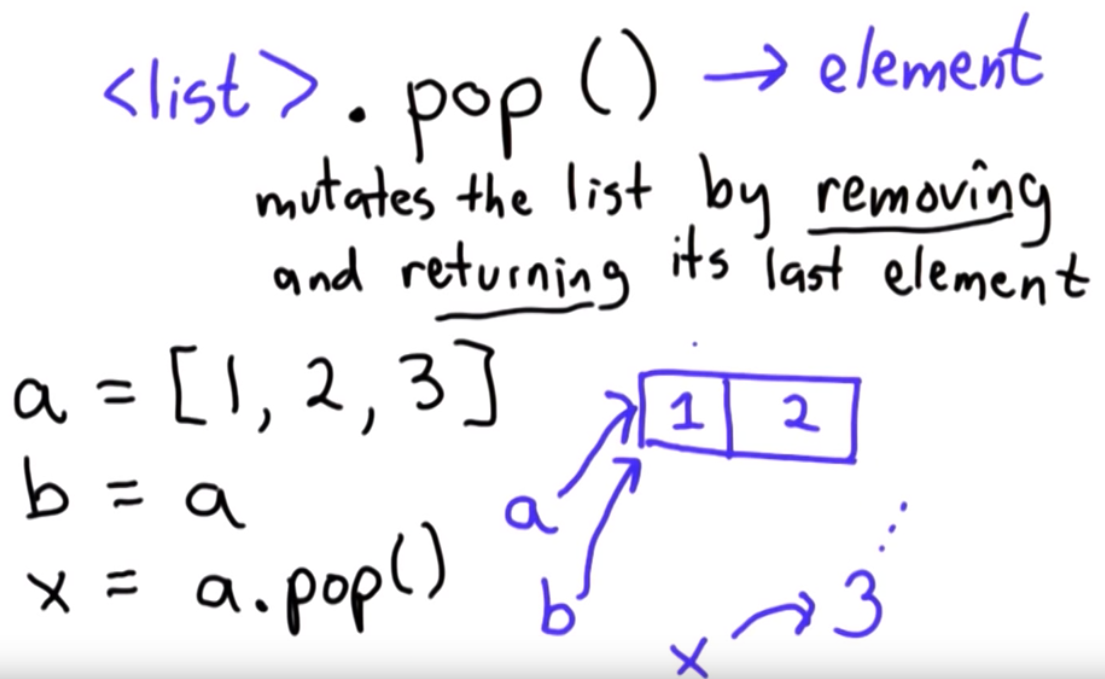 <list>.pop() → element
mutates the list by removing
and returning its last element
a = [1, 2, 3]
1 2
b = a
a
x = a.pop()
b
x → 3